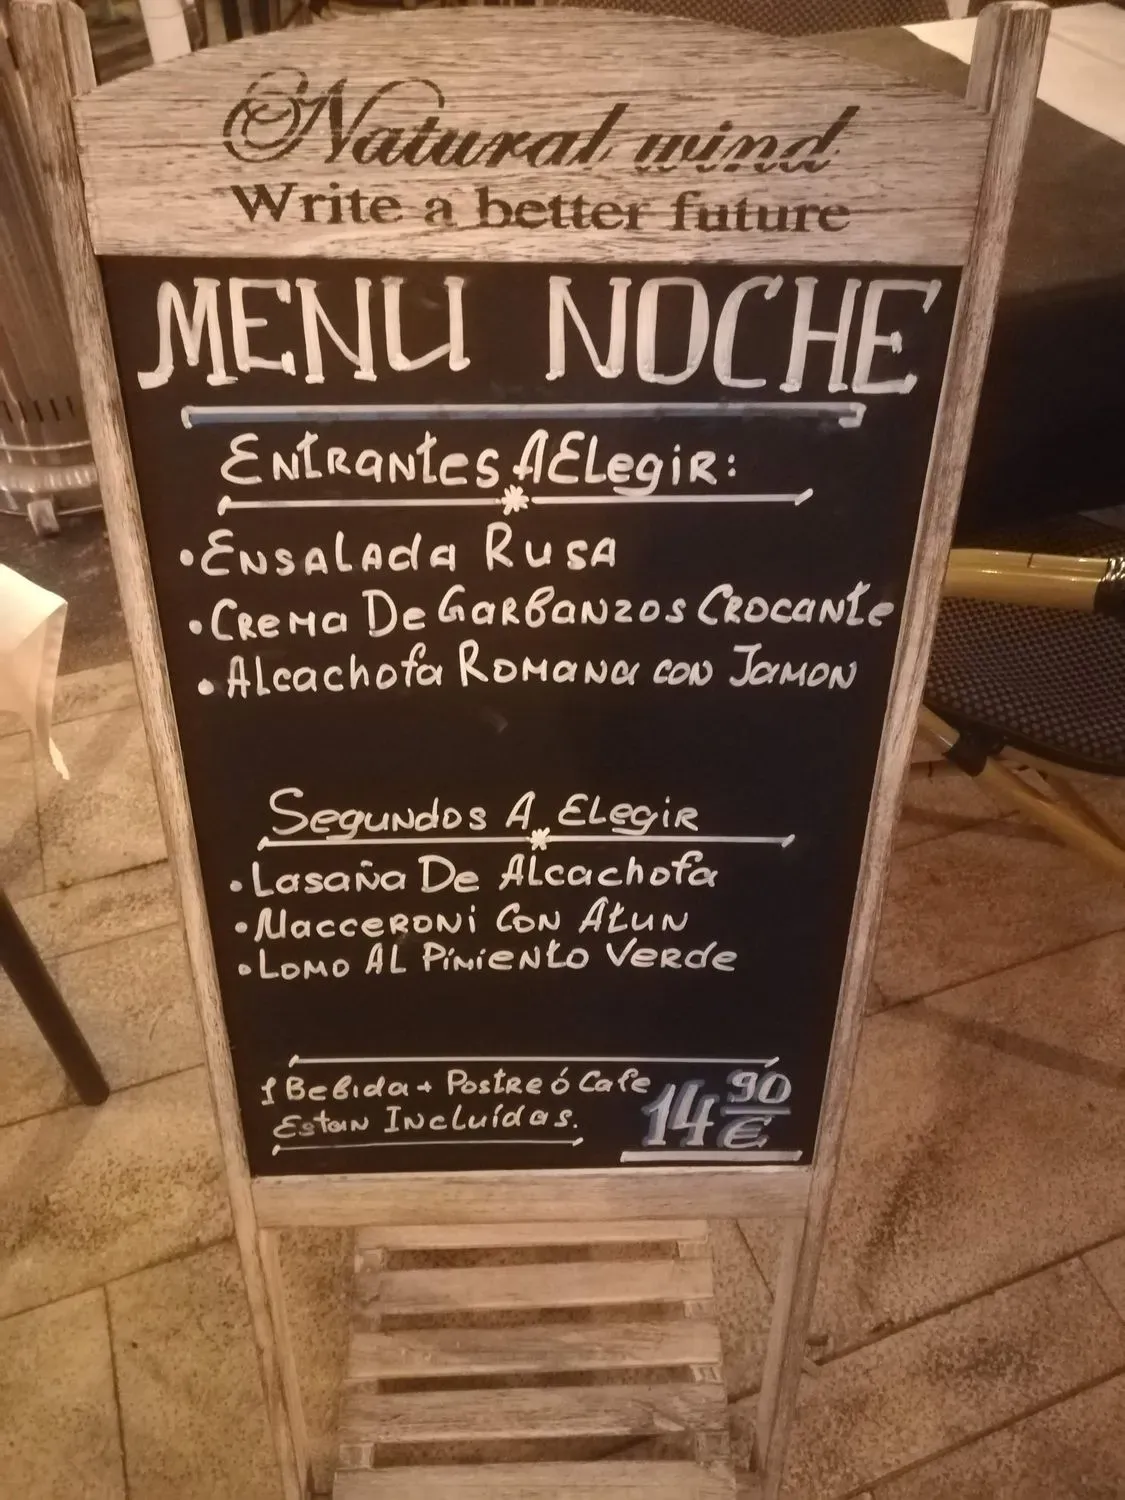 Natural wind
Write a better future
MENU NOCHE
Entrantes A Elegir:
• Ensalada Rusa
• Crema De Garbanzos Crocante
• Alcachofa Romana con Jamon
Segundos A Elegir
• Lasaña De Alcachofa
• Macceroni Con Atun
• Lomo Al Pimiento Verde
1 Bebida + Postre ó Cafe
Estan Incluídas.
14 90 €